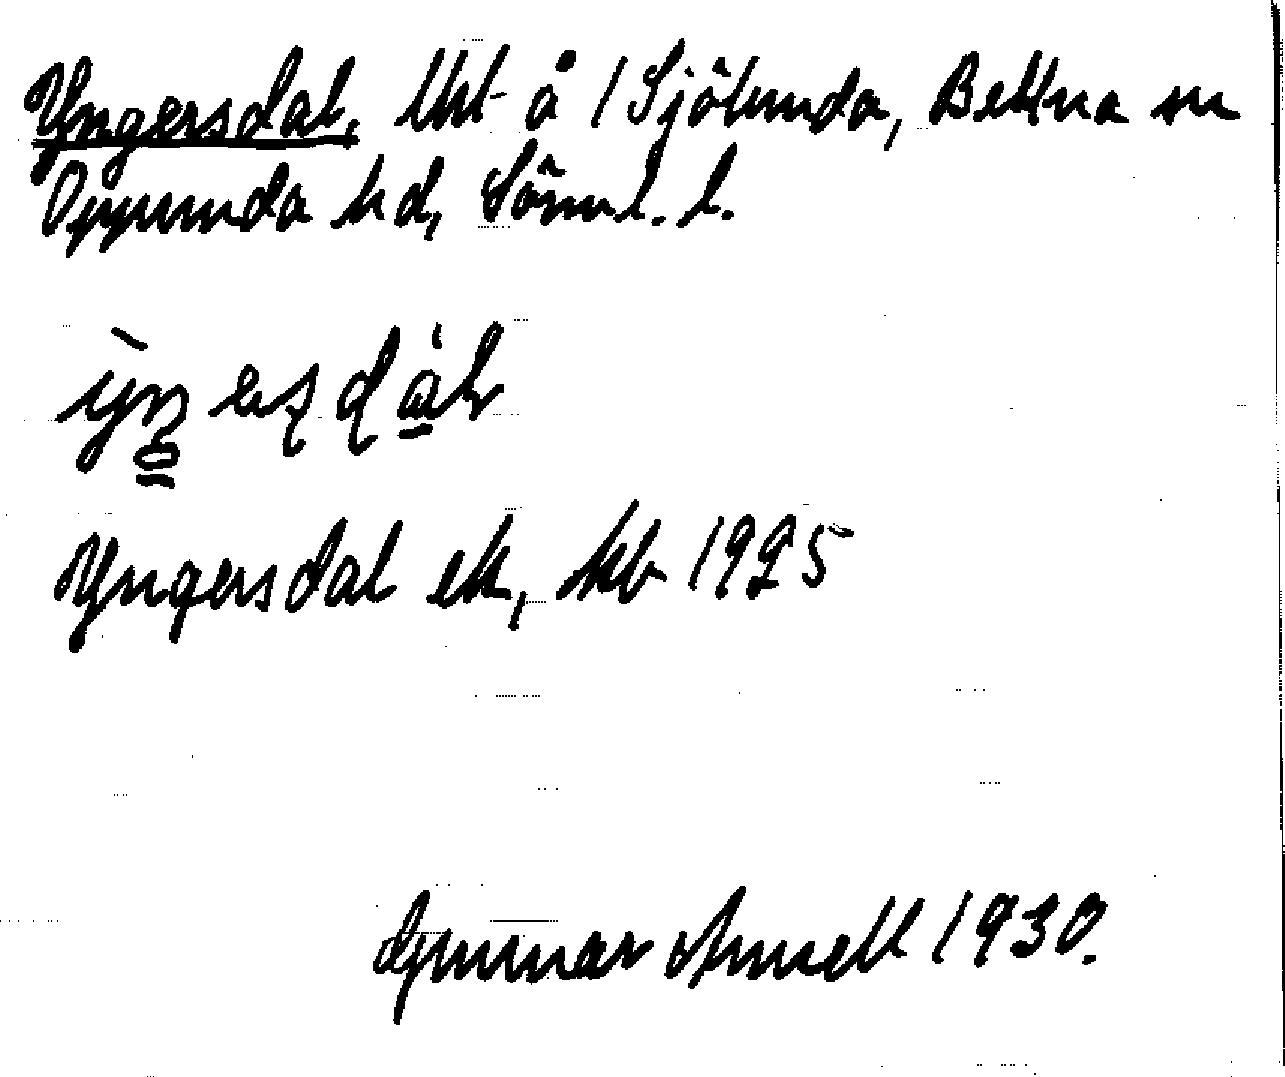 Yngersdal, lht å 1 Sjölunda, Bettna sn
Oppunda hd, Söml. l.
Yngersdal ek, kb 1925
Gunnar Arnell 1930.